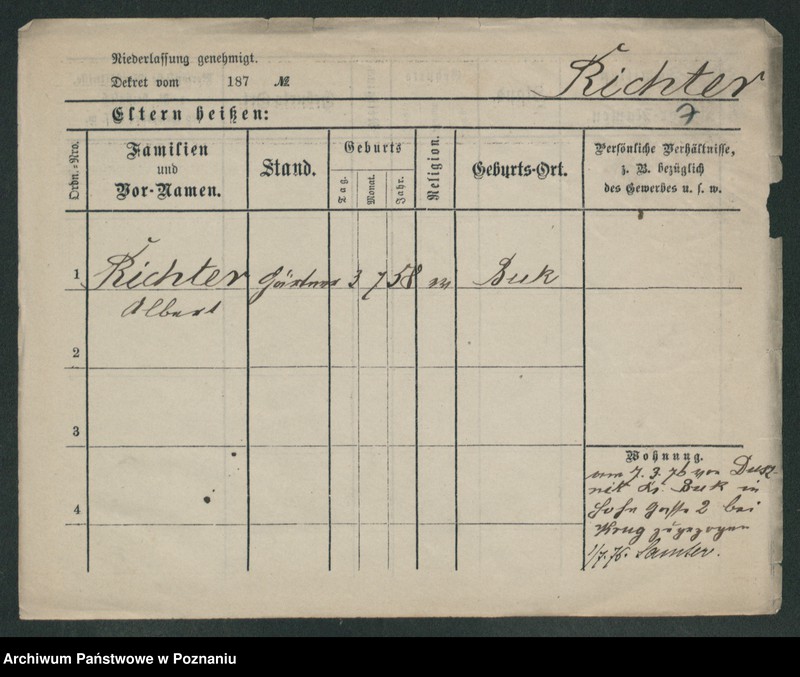 Niederlassung genehmigt.
Dekret vom 187 №
Richter
7
Eltern heißen:
Ordn.-Nro.
Familien
und
Vor-Namen.
Stand.
Geburts
Tag.
Monat.
Jahr.
Religion.
Geburts-Ort.
Persönliche Verhältnisse,
z. B. bezüglich
des Gewerbes u. s. w.
1 Richter Gärtner 3 7 58 ev Buk
Albert
2
3
4
Wohnung.
am 7. 3. 76 von Dusz-
nik Kr. Buk in
Hohe Gasse 2 bei
Krug zugezogen
1/7. 76. Samter.
Archiwum Państwowe w Poznaniu